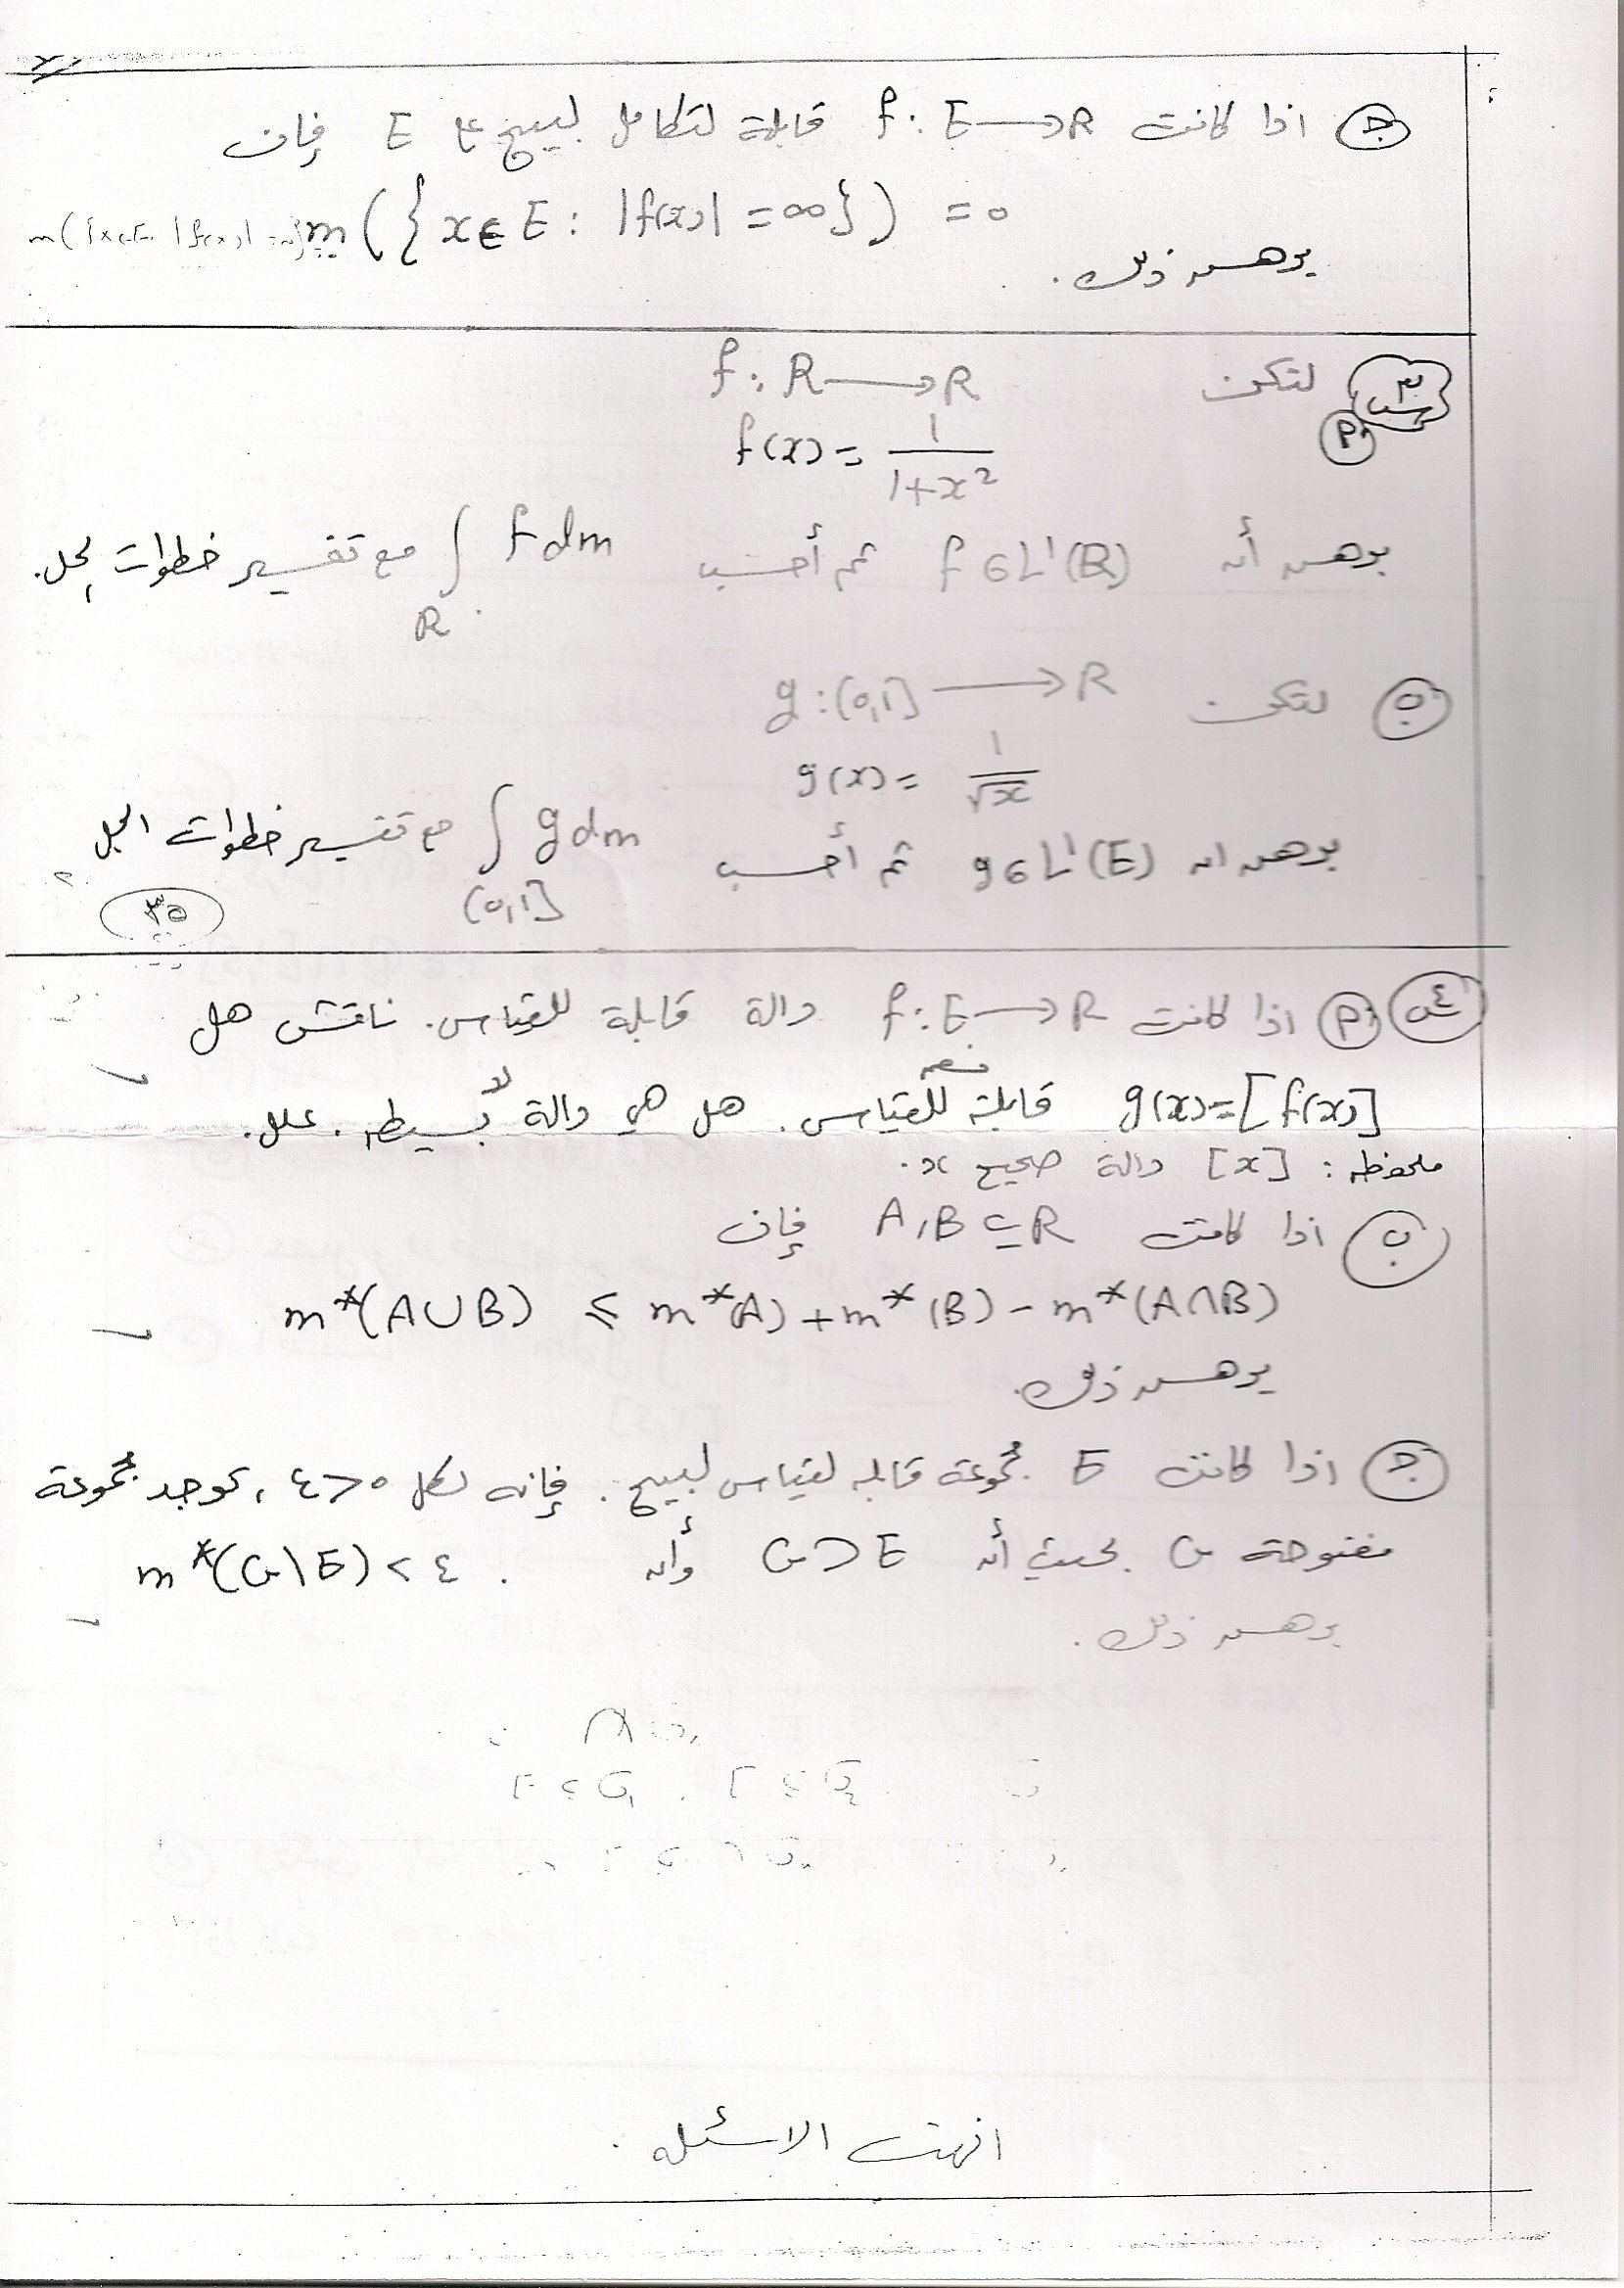 ج) اذا كانت f: E → R قابلة لتكامل لبيج على E فإن
m({x∈E : |f(x)| = ∞}) = 0
برهن ذلك.
س٣ لتكن f: R → R
أ) f(x) = 1/(1+x²)
برهن أن f ∈ L¹(R) ثم أحسب ∫_R f dm مع تفسير خطوات الحل.
ب) لتكن g: (0,1] → R
g(x) = 1/√x
برهن ان g ∈ L¹(E) ثم أحسب ∫_(0,1] g dm مع تفسير خطوات الحل
٣٥
س٤ أ) اذا كانت f: E → R دالة قابلة للقياس. ناقش هل
نعم لا
g(x) = [f(x)] قابلة للقياس. هل هي دالة بسيطه. علل.
ملحوظه: [x] دالة صحيح x.
ب) اذا كانت A, B ⊆ R فإن
m*(A∪B) ≤ m*(A) + m*(B) − m*(A∩B)
برهن ذلك.
ج) اذا كانت E مجموعة قابله لقياس لبيج. فإنه لكل ε > 0، توجد مجموعة
مفتوحة G بحيث أن G ⊃ E وأن m*(G\E) < ε .
برهن ذلك.
انتهت الاسئله.